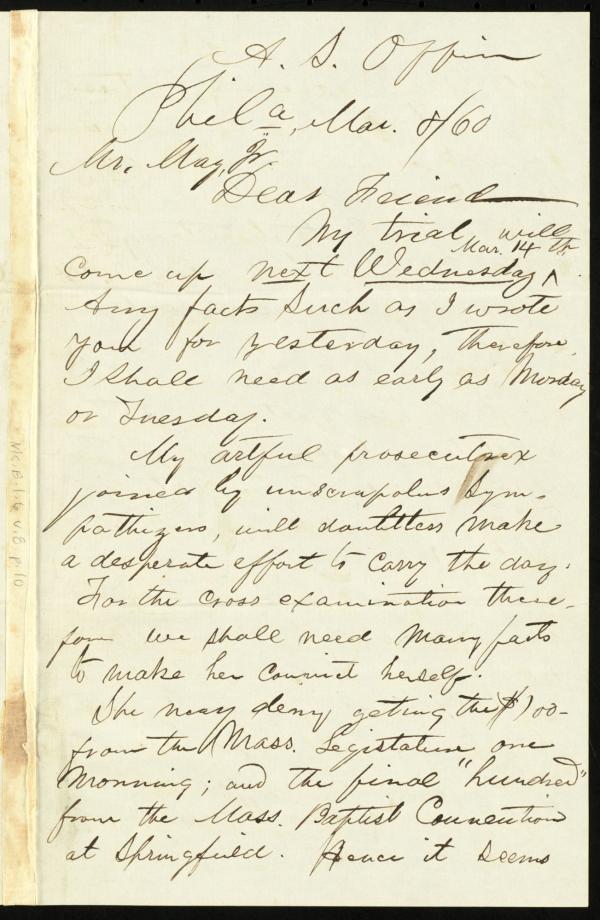 A. S. Office
Phila, Mar. 8/60
Mr. May, Jr.
Dear Friend
My trial will
Mar. 14th
come up next Wednesday ^.
Any facts such as I wrote
you for yesterday, therefore,
I shall need as early as Monday
or Tuesday.
My artful prosecutrex
joined by unscrapolus sym-
pathizers, will doubtless make
a desperate effort to carry the day.
For the cross examination there-
fore we shall need many facts
to make her convict herself.
She may deny getting the $100-
from the Mass. Legislature one
Monning; and the final "hundred"
from the Mass. Baptist Convention
at Springfield. Hence it seems
Ms.B.1.6 v.8 p.10